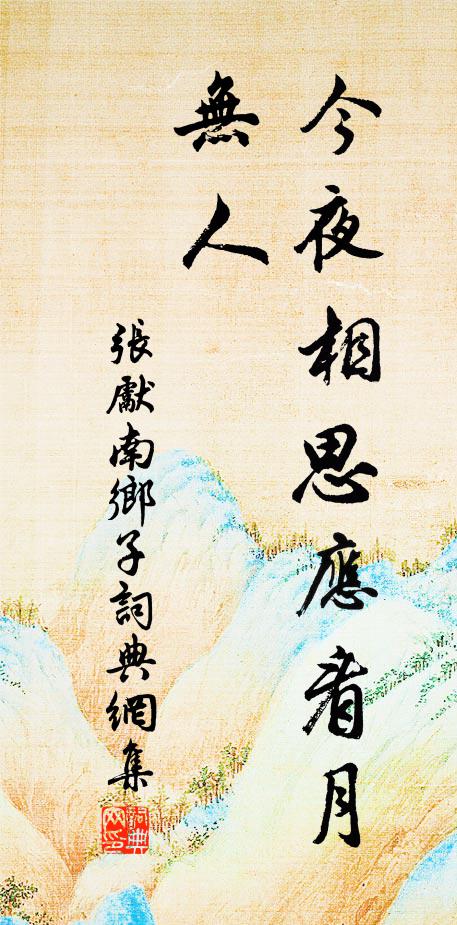 今夜相思應看月
無人
張獻南鄉子詞典網集
詞典
网印